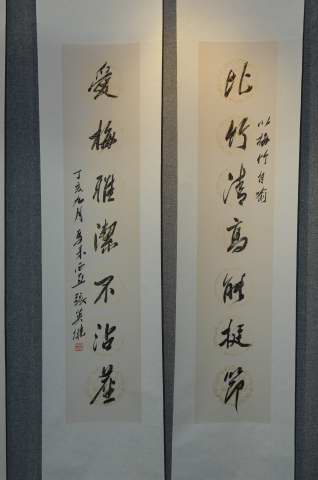 比竹清高能挺節
以梅竹自喻
愛梅雅潔不沾塵
丁亥九月
張英健